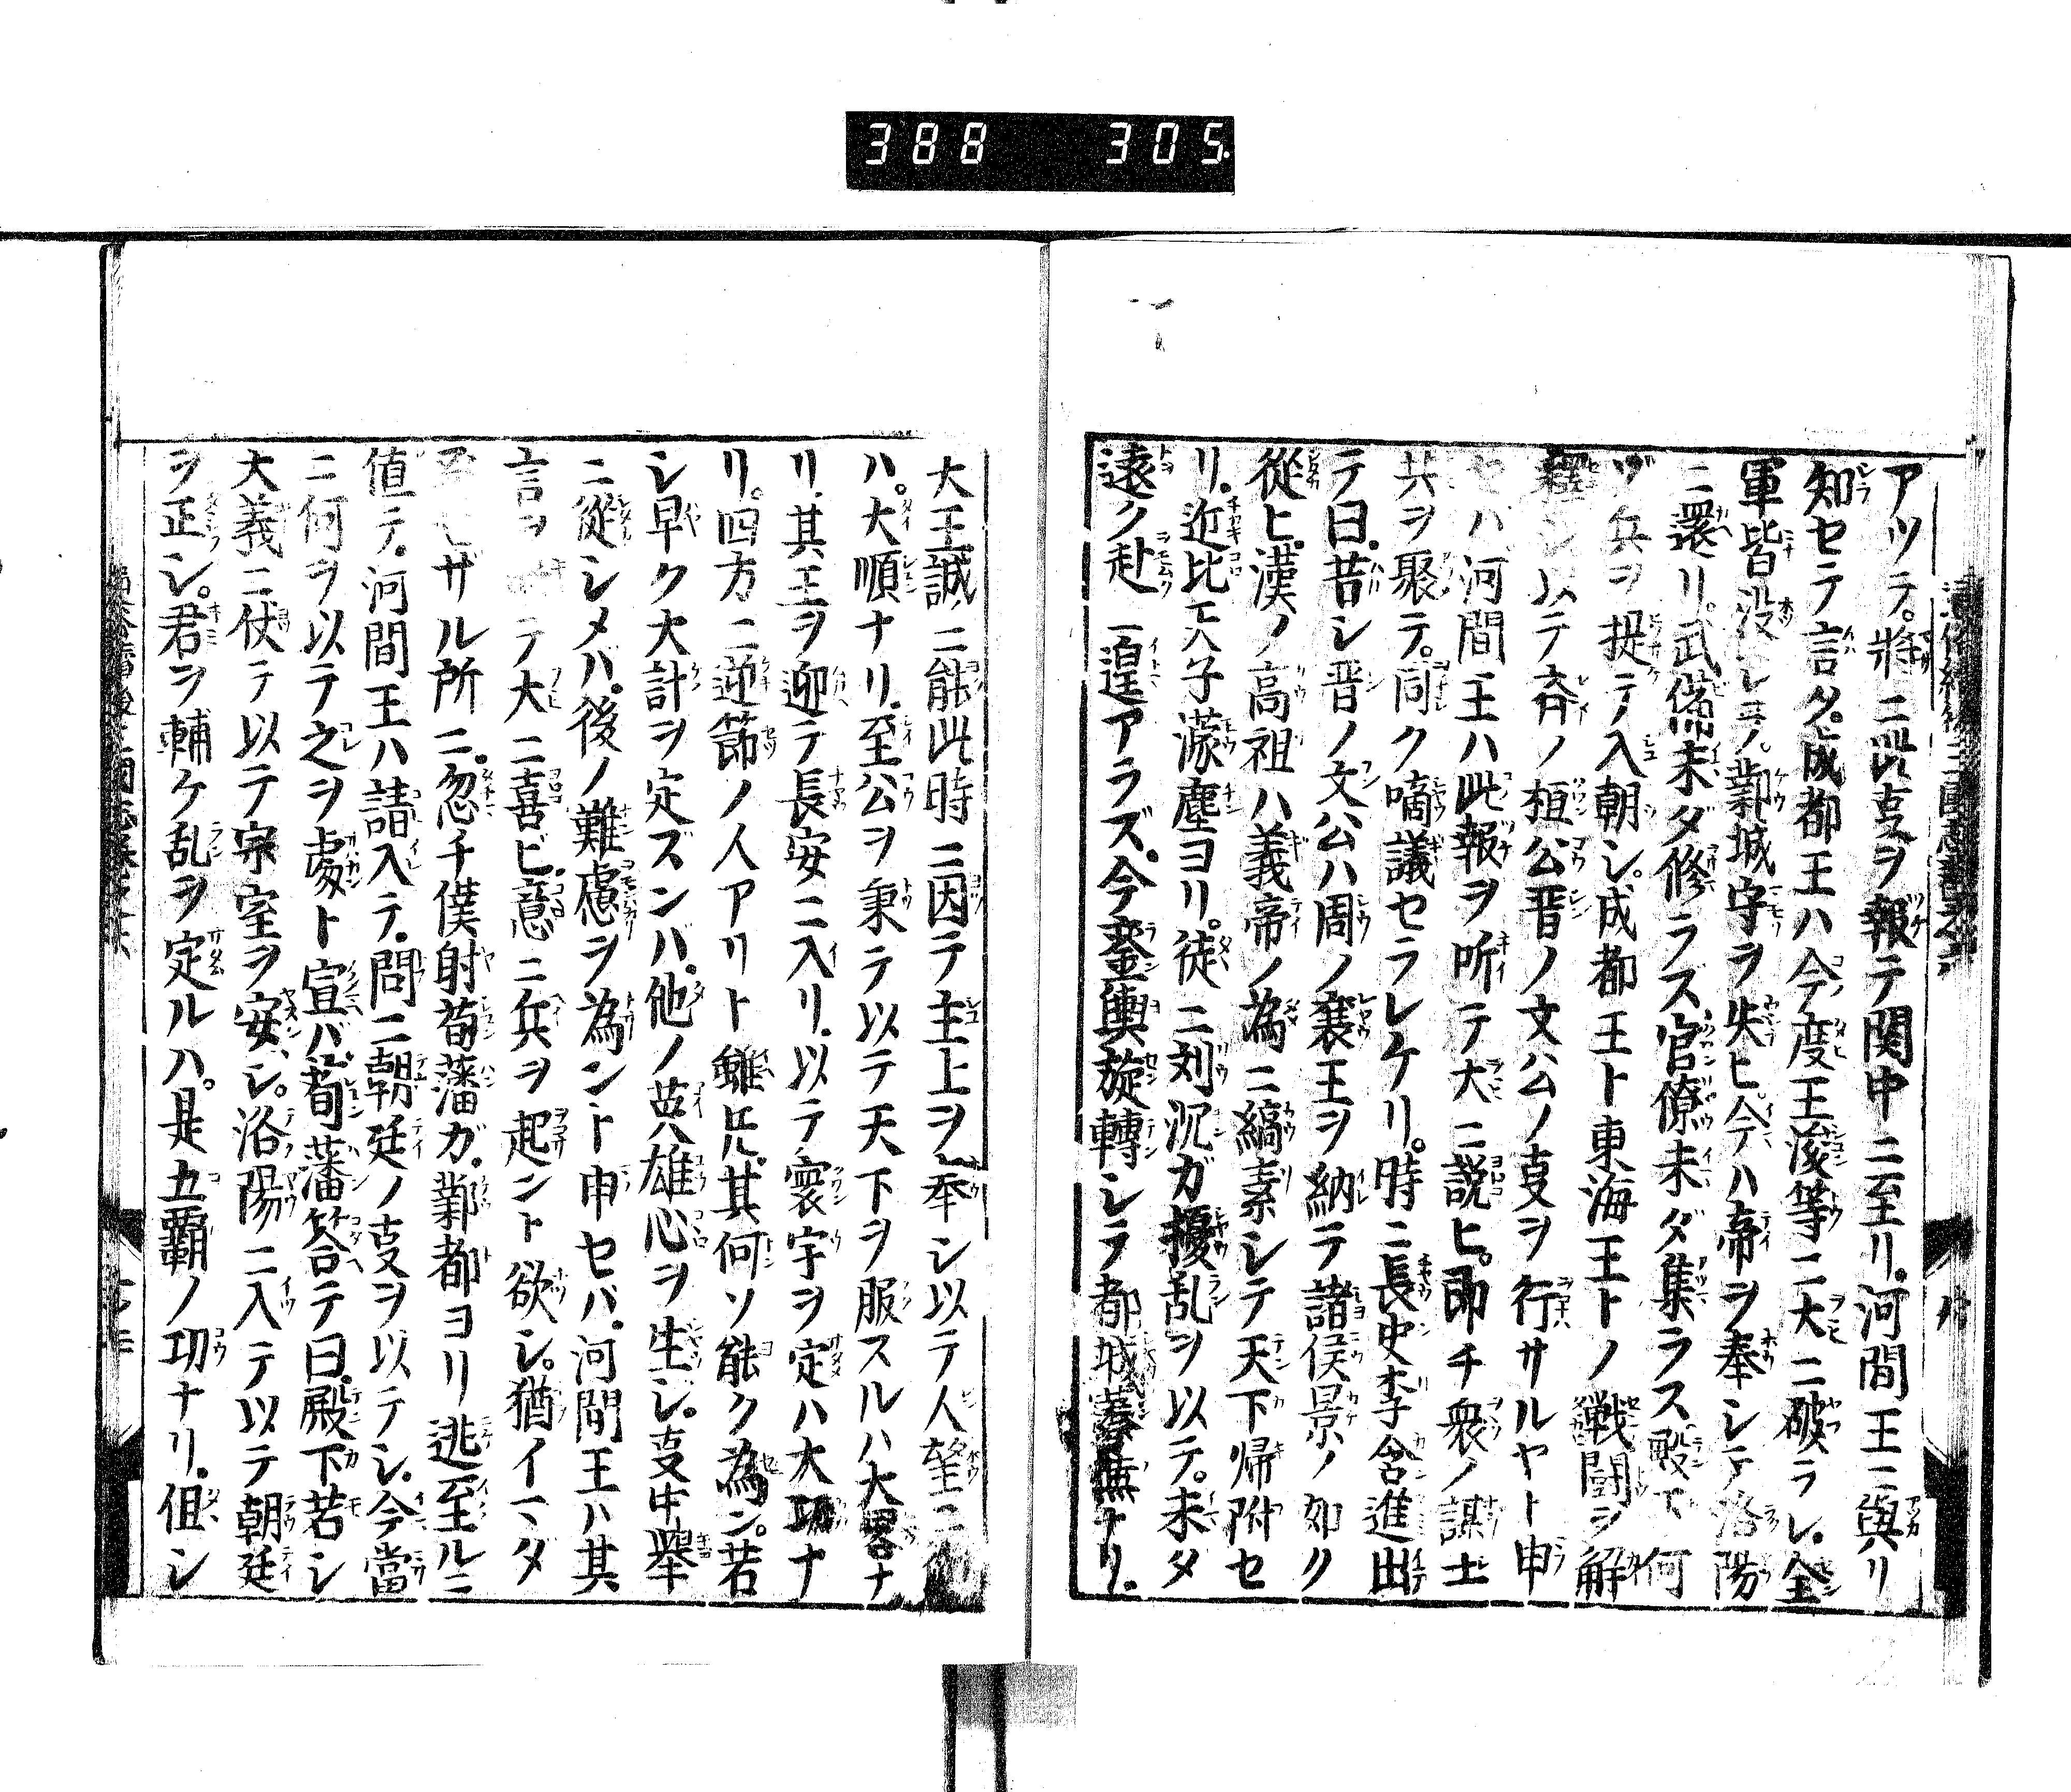 388 305
アツテ。將ニ此叓ヲ報テ関中ニ至リ。河間王ニ與リ
知セテ言ク。成都王ハ今度王浚等ニ大ニ破ラレ。全
軍皆没シテ。鄴城守ラ失ヒ。今ハ帝ヲ奉シテ洛陽
ニ還リ。武備未ダ修ラズ。官僚未ダ集ラス殿下何
ゾ兵ヲ提テ入朝シ。成都王ト東海王トノ戦闘ヲ解
釋シ以テ斉ノ桓公晋ノ文公ノ叓ヲ行サルヤト申
セハ河間王ハ此報ヲ听テ大ニ説ヒ。即チ衆ノ謀士
共ヲ聚テ。同ク啇議セラレケリ。時ニ長史李含進出
テ曰。昔シ晋ノ文公ハ周ノ襄王ヲ納テ諸侯景ノ如ク
從ヒ。漢ノ高祖ハ義帝ノ為ニ縞素シテ天下帰附セ
リ。近比天子濛塵ヨリ。徒ニ刘沉ガ擾乱ヲ以テ。未タ
遠ク赴ニ遑アラズ。今銮輿旋轉シラ都城蓁蕪ナリ。
大王誠ニ能此時ニ因テ主上ヲ奉シ以テ人望ニ
ハ。大順ナリ。至公ヲ秉テ以テ天下ヲ服スルハ大畧ナ
リ。其王ヲ迎テ長安ニ入リ。以テ寰宇ヲ定ハ大功ナ
リ。四方ニ逆節ノ人アリト雖𪜈。其何ソ能ク為ン。若
シ早ク大計ヲ定ズンバ。他ノ英雄心ヲ生シ。叓中舉
ニ從シメバ。後ノ難慮ヲ為ント申セバ。河間王ハ其
言ヲ テ大ニ喜ビ。意ニ兵ヲ起ント欲シ。猶イマダ
ザル所ニ。忽チ僕射荀藩ガ。鄴都ヨリ逃至ルニ
値テ。河間王ハ請入テ。問ニ朝廷ノ叓ヲ以テシ。今當
ニ何ヲ以テ之ヲ處ト宣バ。荀藩答テ曰。殿下若シ
大義ニ仗テ以テ宗室ヲ安シ。洛陽ニ入テ以テ朝廷
ヲ正シ。君ヲ輔ケ乱ヲ定ルハ。是五覇ノ功ナリ。但シ